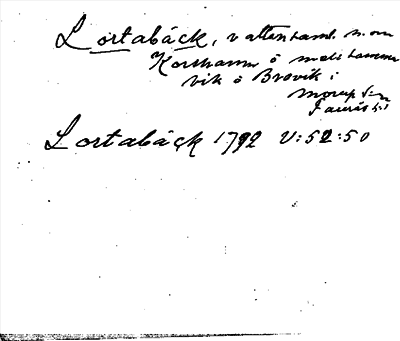 Lortabäck, vattensaml. n. om
Korshamn ö
vik ö Brovik i
Morup sn
Faurås hd
Lortabäck 1792 V:52:50